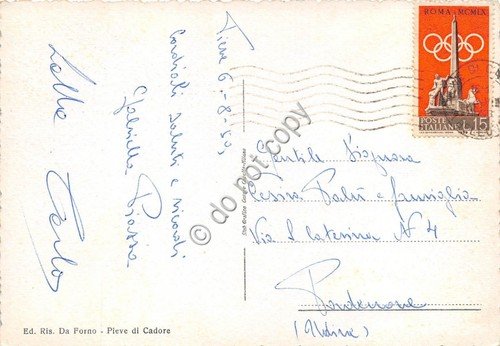 Pieve 6-8-59
Cordiali saluti e ricordi
Piazza
Lalla
Carlo
ROMA · MCMLX
POSTE
ITALIANE L.15
Gentile Signora
Tesin Palù e famiglia
Via S Caterina N 4
Pordenone
(Udine)
Ed. Ris. Da Forno - Pieve di Cadore
do not copy